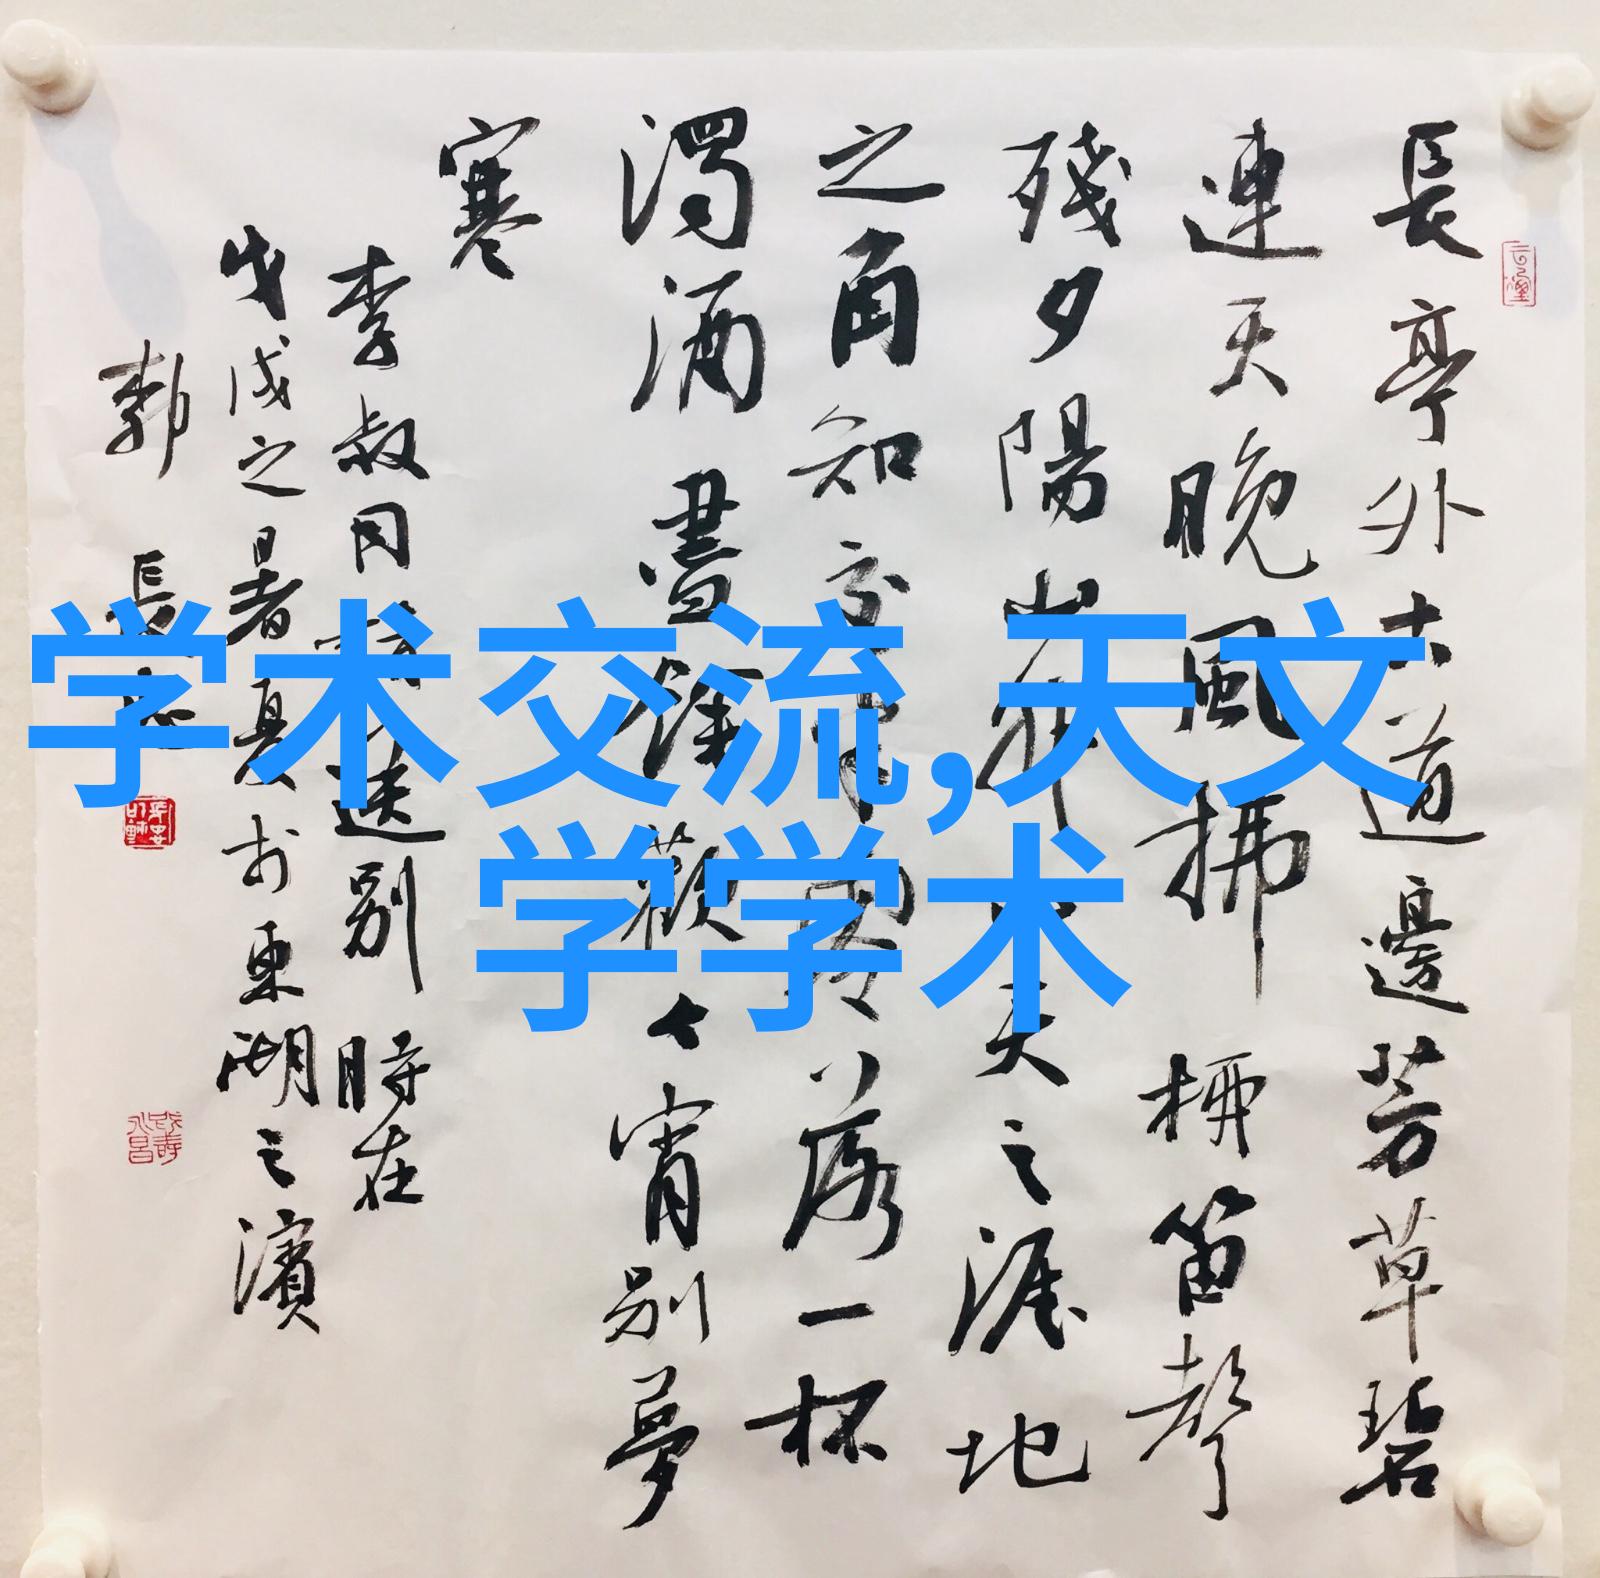 長亭外古道邊芳草碧
連天晚風拂柳笛聲
殘夕陽山外山天之涯地
之角知交半零落一杯
濁酒盡餘歡今宵別夢
寒
李叔同 送别 時在
戊戌之暑 於東湖之濱
郭 長
学术交流,天文
学学术